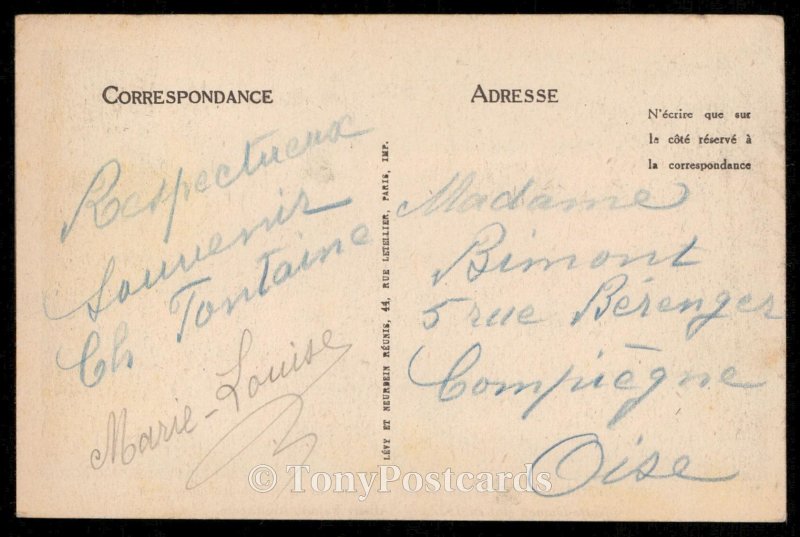 CORRESPONDANCE
Respectueux
Souvenir
Ch Fontaine
Marie-Louise
LÉVY ET NEURDEIN RÉUNIS, 44, RUE LETELLIER, PARIS, IMP.
ADRESSE
N'écrire que sur
le côté réservé à
la correspondance
Madame
Bimont
5 rue Bérenger
Compiègne
Oise
© TonyPostcards